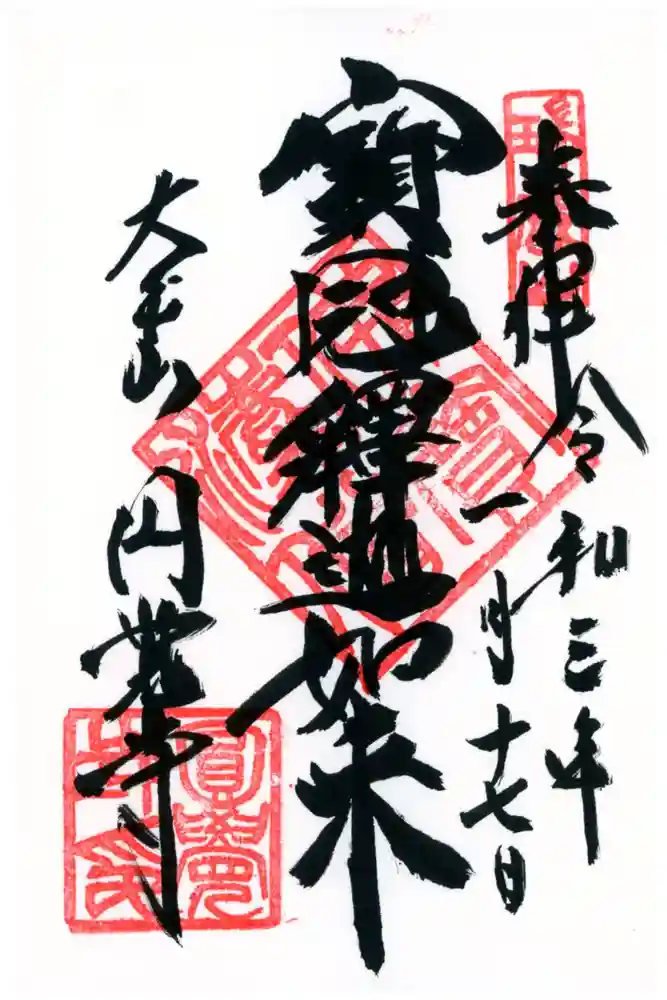 奉拝 令和三年
一月十七日
寶冠釋迦如来
大本山 円覚寺